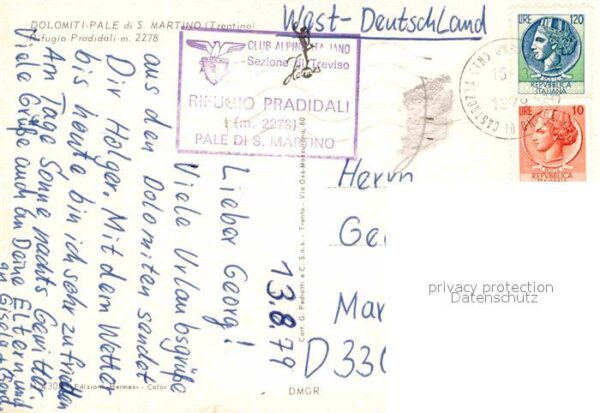 DOLOMITI-PALE di S. MARTINO (Trentino)
Rifugio Pradidali m. 2278
West-Deutschland
CLUB ALPINO ITALIANO
Sezione di Treviso
RIFUGIO PRADIDALI
(m. 2278)
PALE DI S. MARTINO
LIRE 120
REPVBBLICA
ITALIANA
LIRE 10
REPVBBLICA
ITALIANA
13.8.79
Lieber Georg!
Viele Urlaubsgrüße
aus den Dolomiten sendet
Dir Holger. Mit dem Wetter
bis heute bin ich sehr zufrieden
Am Tage Sonne nachts Gewitter.
Viele Grüße auch an Deine Eltern und
an Gisela + Gerd
Herrn
Ge
Mar
D 330
Cart. G. Pedrotti e C. S.n.c. - Trento - Via
60
Edizioni
Color
DMGR
privacy protection
Datenschutz